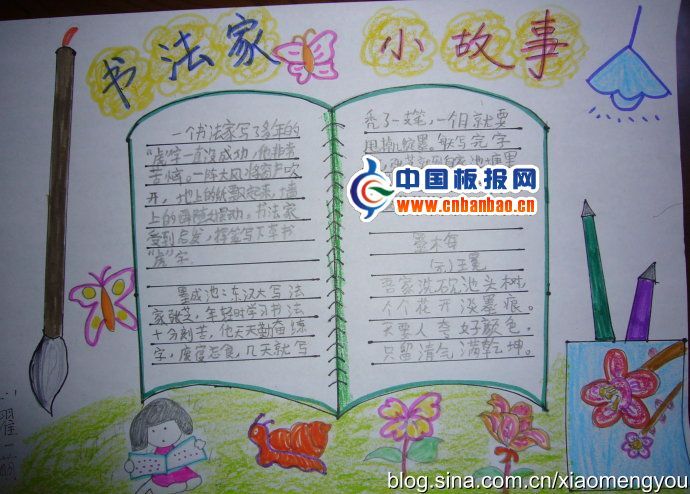 书法家 小故事
一个书法家写了多年的
"虎"字一直没成功,他非常
苦恼。一阵大风将窗户吹
开,地上的纸飘起来,墙
上的
动。书法家
受到启发,挥笔写下草书
"虎"字.
墨成池:东汉大写法
家张芝,年轻时学习书法
十分刻苦,他天天勤奋练
字,废寝忘食,几天就写
秃了一支笔,一个月就要
用掉
墨。每写完字
池塘里
中国板报网
www.cnbanbao.cn
墨木每
(元)王冕
吾家洗砚池头树
个个花开淡墨痕。
不要人夸好颜色,
只留清气满乾坤。
blog.sina.com.cn/xiaomengyou